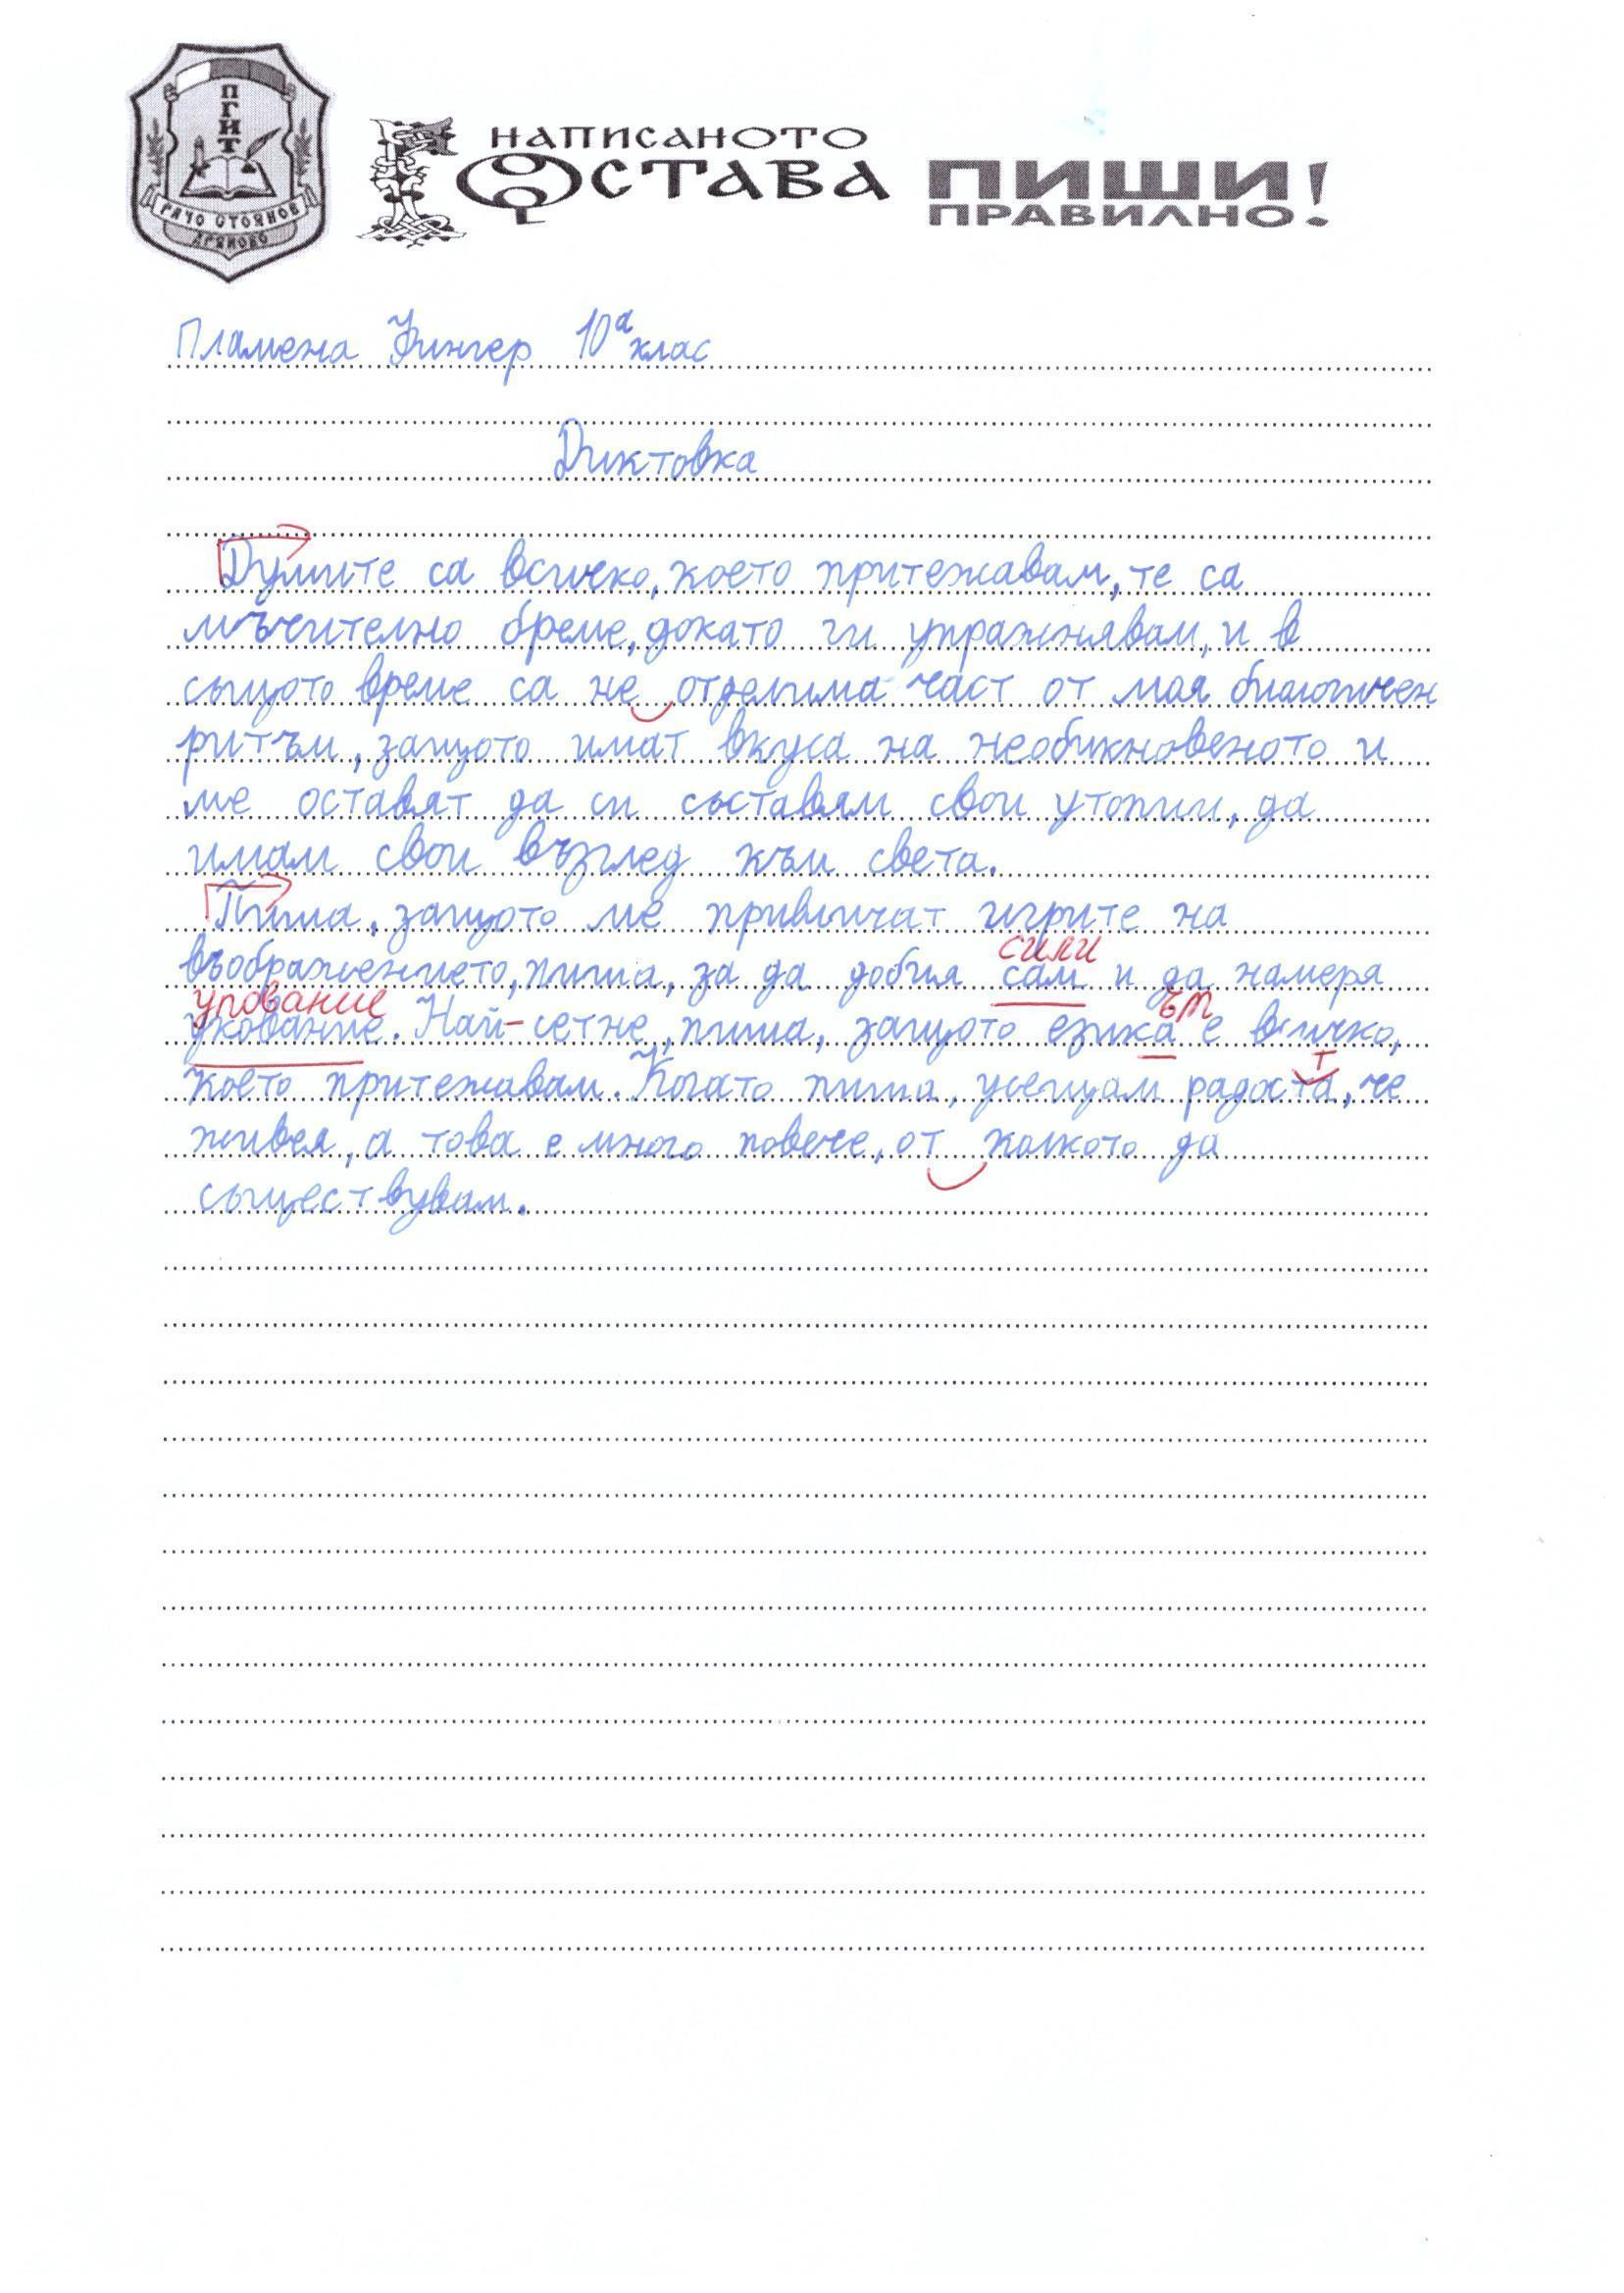 ПГИТ
РАЧО СТОЯНОВ
ДРЯНОВО
НАПИСАНОТО
ОСТАВА
ПИШИ
ПРАВИЛНО!
Пламена 10а клас
Диктовка
Думите са всичко, което притежавам, те са
мъчително бреме, докато ги упражнявам, и в
същото време са не отделима част от моя биологичен
ритъм, защото имат вкуса на необикновеното и
ме оставят да си съставям свои утопии, да
имам свои възглед към света.
Пиша, защото ме привличат игрите на
сили
въображението, пиша, за да добия сам и да намеря
упование ът
укование. Най-сетне, пиша, защото езика е всичко,
т
което притежавам. Когато пиша, усещам радоста, че
живея, а това е много повече, от колкото да
съществувам.